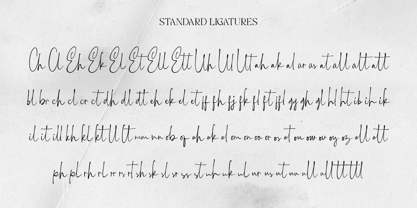 STANDARD LIGATURES
Ch Cl Eh Ek El Et Ell Ett Uh Ul Ut ah ak al ur us at all att att
bl br ch cl cr ct dh dl dt eh ek el et ff fh fj fk fl ft ffl gg gh gl hl ht ib ih ik
il it ill kh kl kt ll lt mm nn ob of oh ok ol om on oo or os ot ou ow ov oy oz oll ott
ph pl rh rl rr rs rt sh sk sl sr ss st uh uk ul ur us ut uu ull utt tt ttl